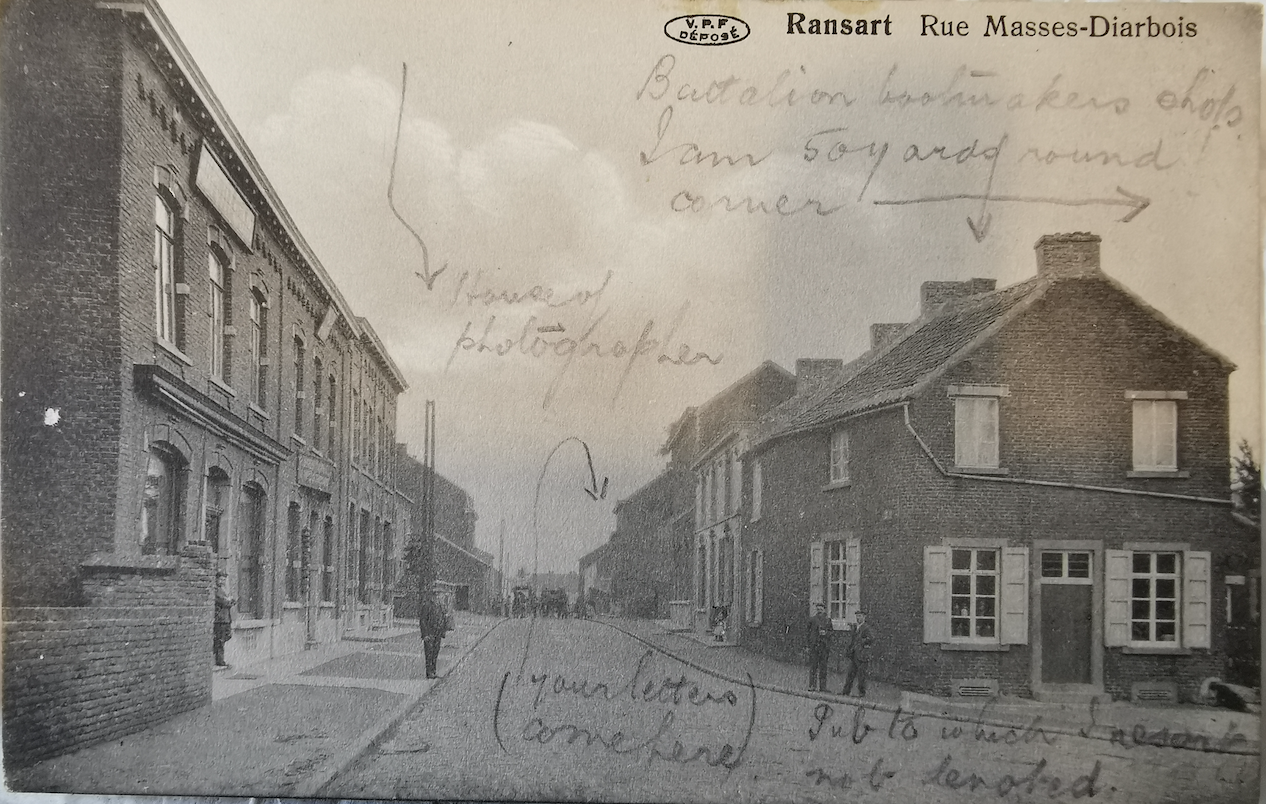 V.P.F.
DÉPOSÉ
Ransart Rue Masses-Diarbois
Battalion bootmakers shop.
I am 50 yards round
corner
House of
photographer
(your letters
come here)
Pub to which I
not devoted.